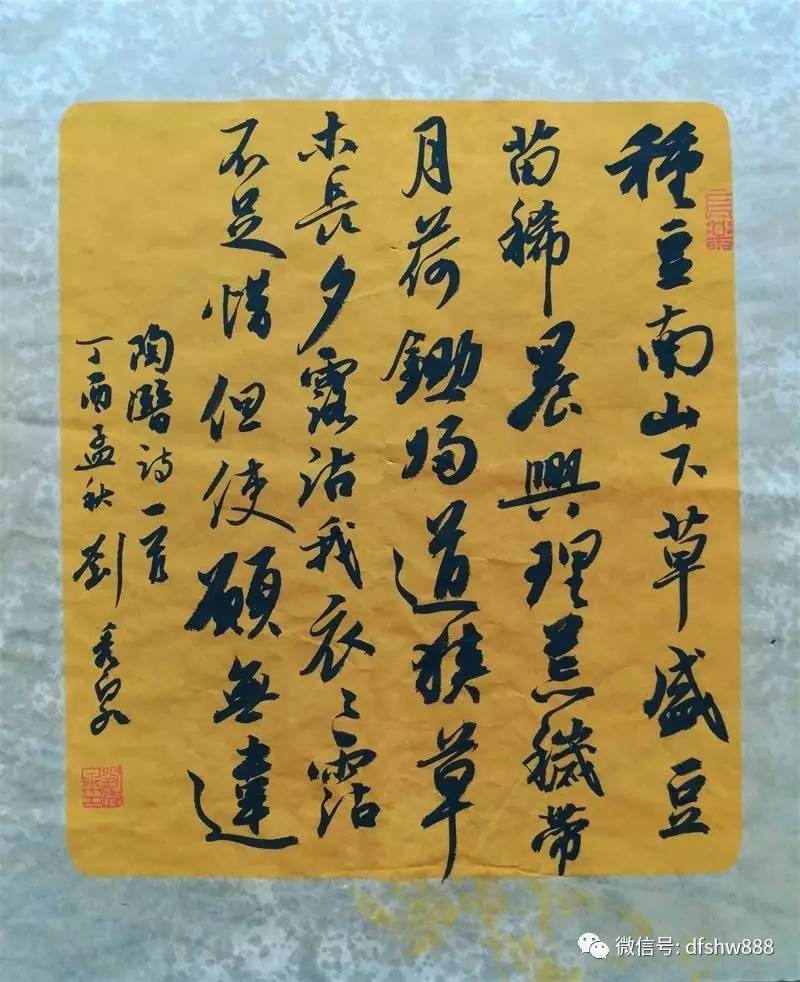 種豆南山下草盛豆
苗稀晨興理荒穢帶
月荷鋤歸道狹草
木長夕露沾我衣〻霑
不足惜但使願無違
陶潛詩一首
丁酉孟秋劉秀泉
微信号: dfshw888